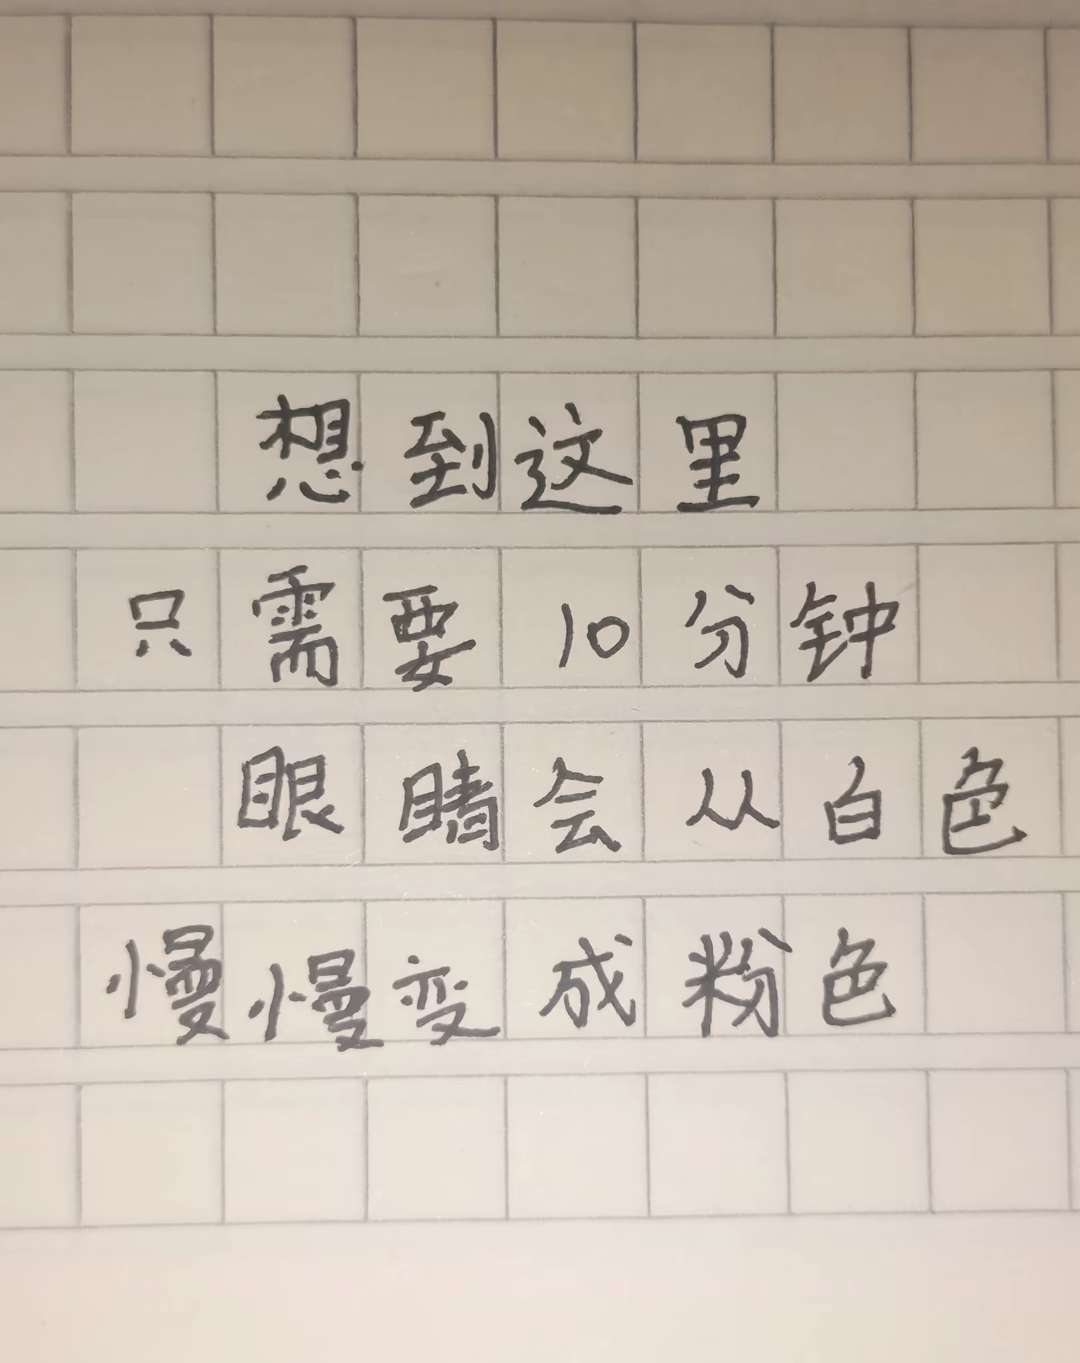 想到这里
只需要10分钟
眼睛会从白色
慢慢变成粉色